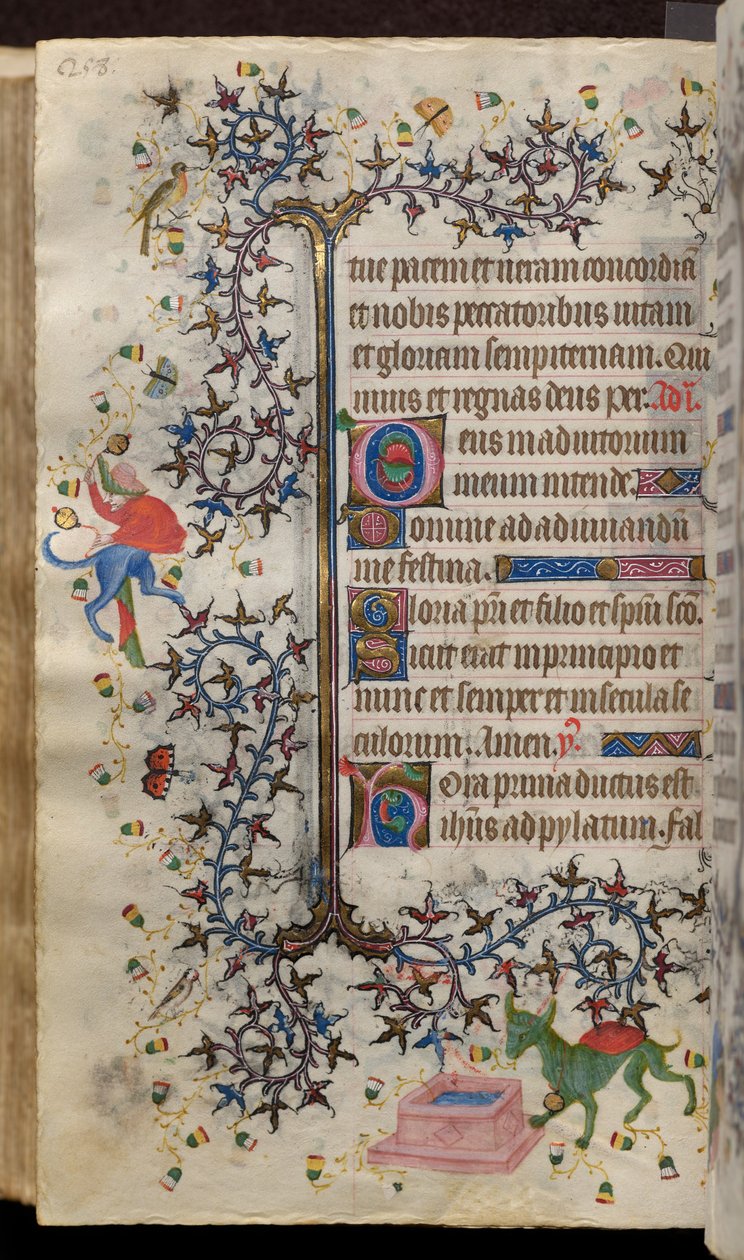 253.
tue pacem et ueram concordiã
et nobis peccatoribus uitam
et gloriam sempiternam. Qui
uiuis et regnas deus per. Ad .i.
Deus in adiutorium
meum intende.
Domine ad adiuuandũ
me festina.
Gloria pr̃i et filio et spũi scõ.
Sicut erat in principio et
nunc et semper et in secula se
culorum. Amen. ỹ
Hora prima ductus est
ih̃us ad pylatum. fal